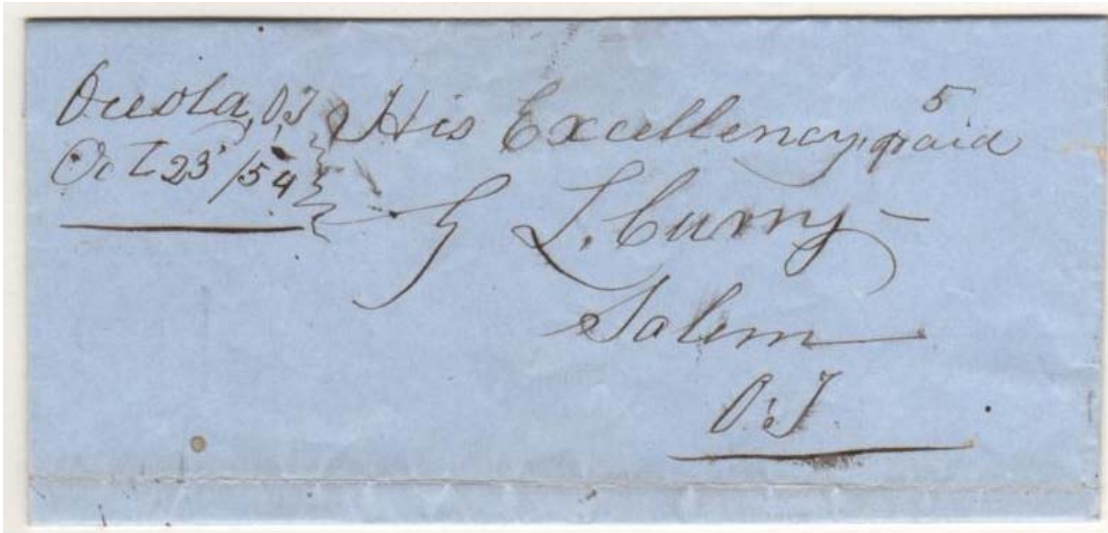 Oceola, O,T
Oct 23 /54
5
His Excellency, paid
G L. Curry
Salem
O.T.